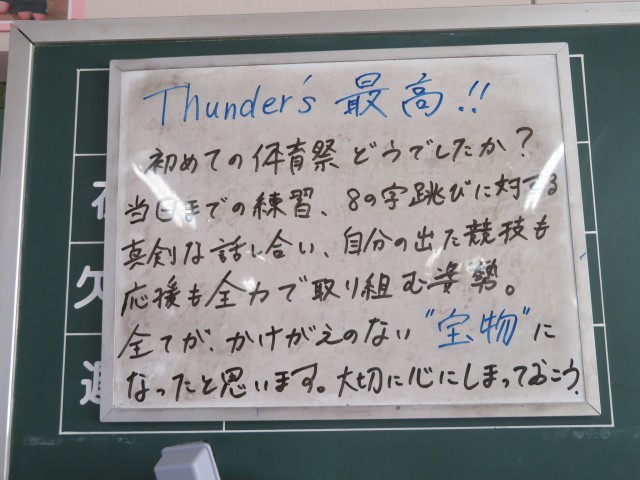 Thunder's 最高!!
初めての体育祭どうでしたか?
当日までの練習、8の字跳びに対する
真剣な話し合い、自分の出た競技も
応援も全力で取り組む姿勢。
全てが、かけがえのない"宝物"に
なったと思います。大切に心にしまっておこう。
欠